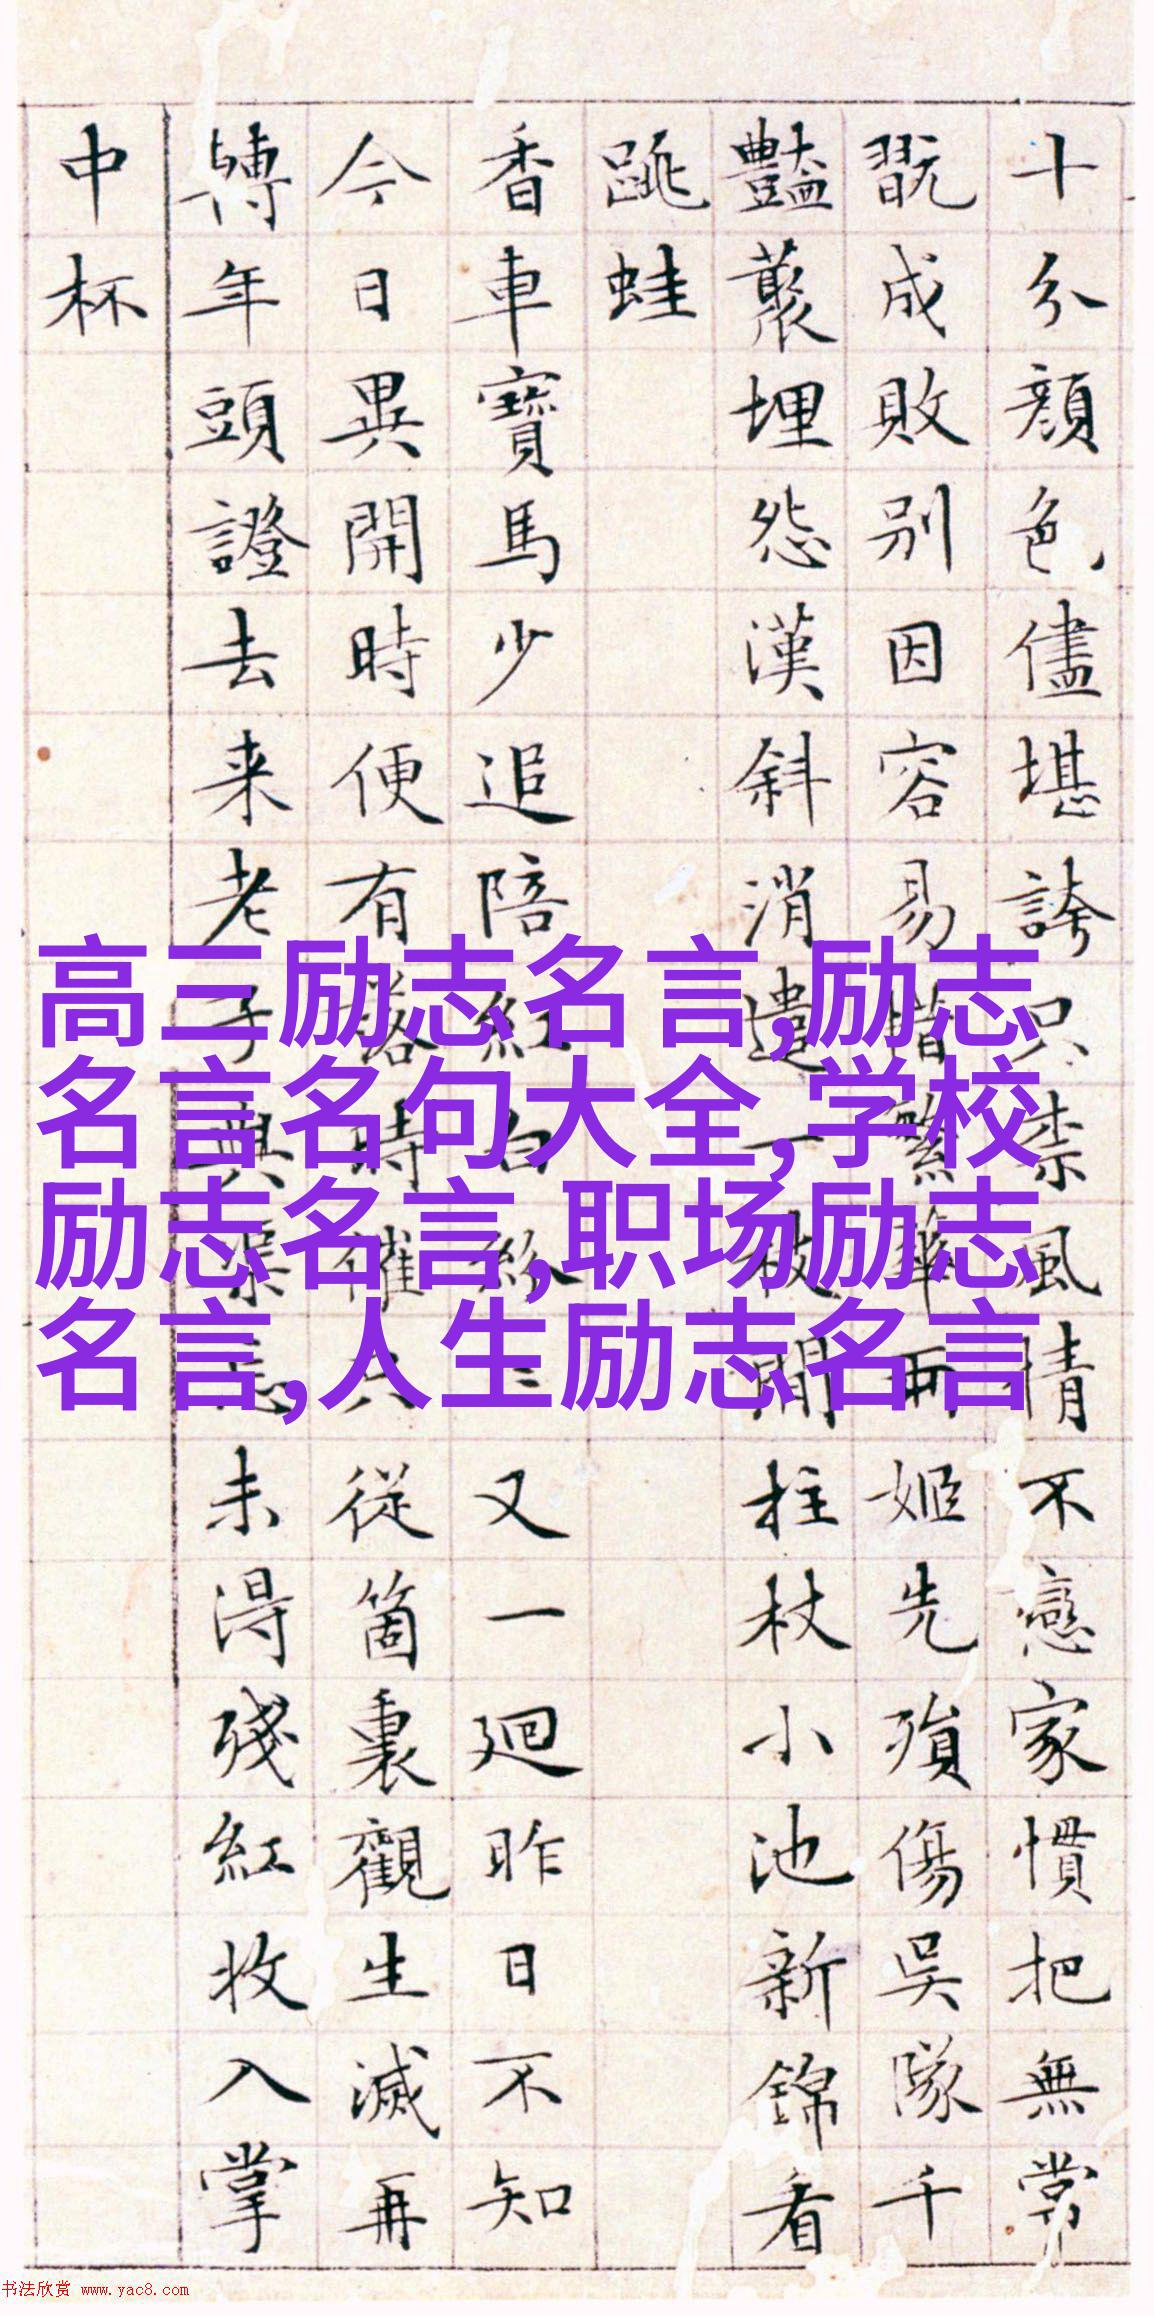 十分顏色儘堪誇只柰風情不戀家慣把無常
翫成敗別因容易惜繁華兩姬先殞傷吳隊千
豔藂埋怨漢斜消遣一枝閒柱杖小池新錦看
跳蛙
香車寶馬少追陪紅白紛紛又一廻昨日不知
今日異開時便有落時催只從箇裏觀生滅再
轉年頭證去来老子與渠未得殘紅收入掌
中杯
高三励志名言,励志
名言名句大全,学校
励志名言,职场励志
名言,人生励志名言
书法欣赏 www.yac8.com